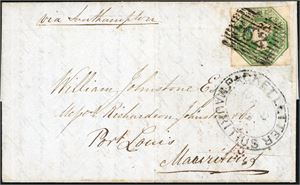 via Southampton
William Johnstone Esq
Messrs Richardson Johnstone
Port Louis
Mauritius
PACKET LETTER
MAURITIUS